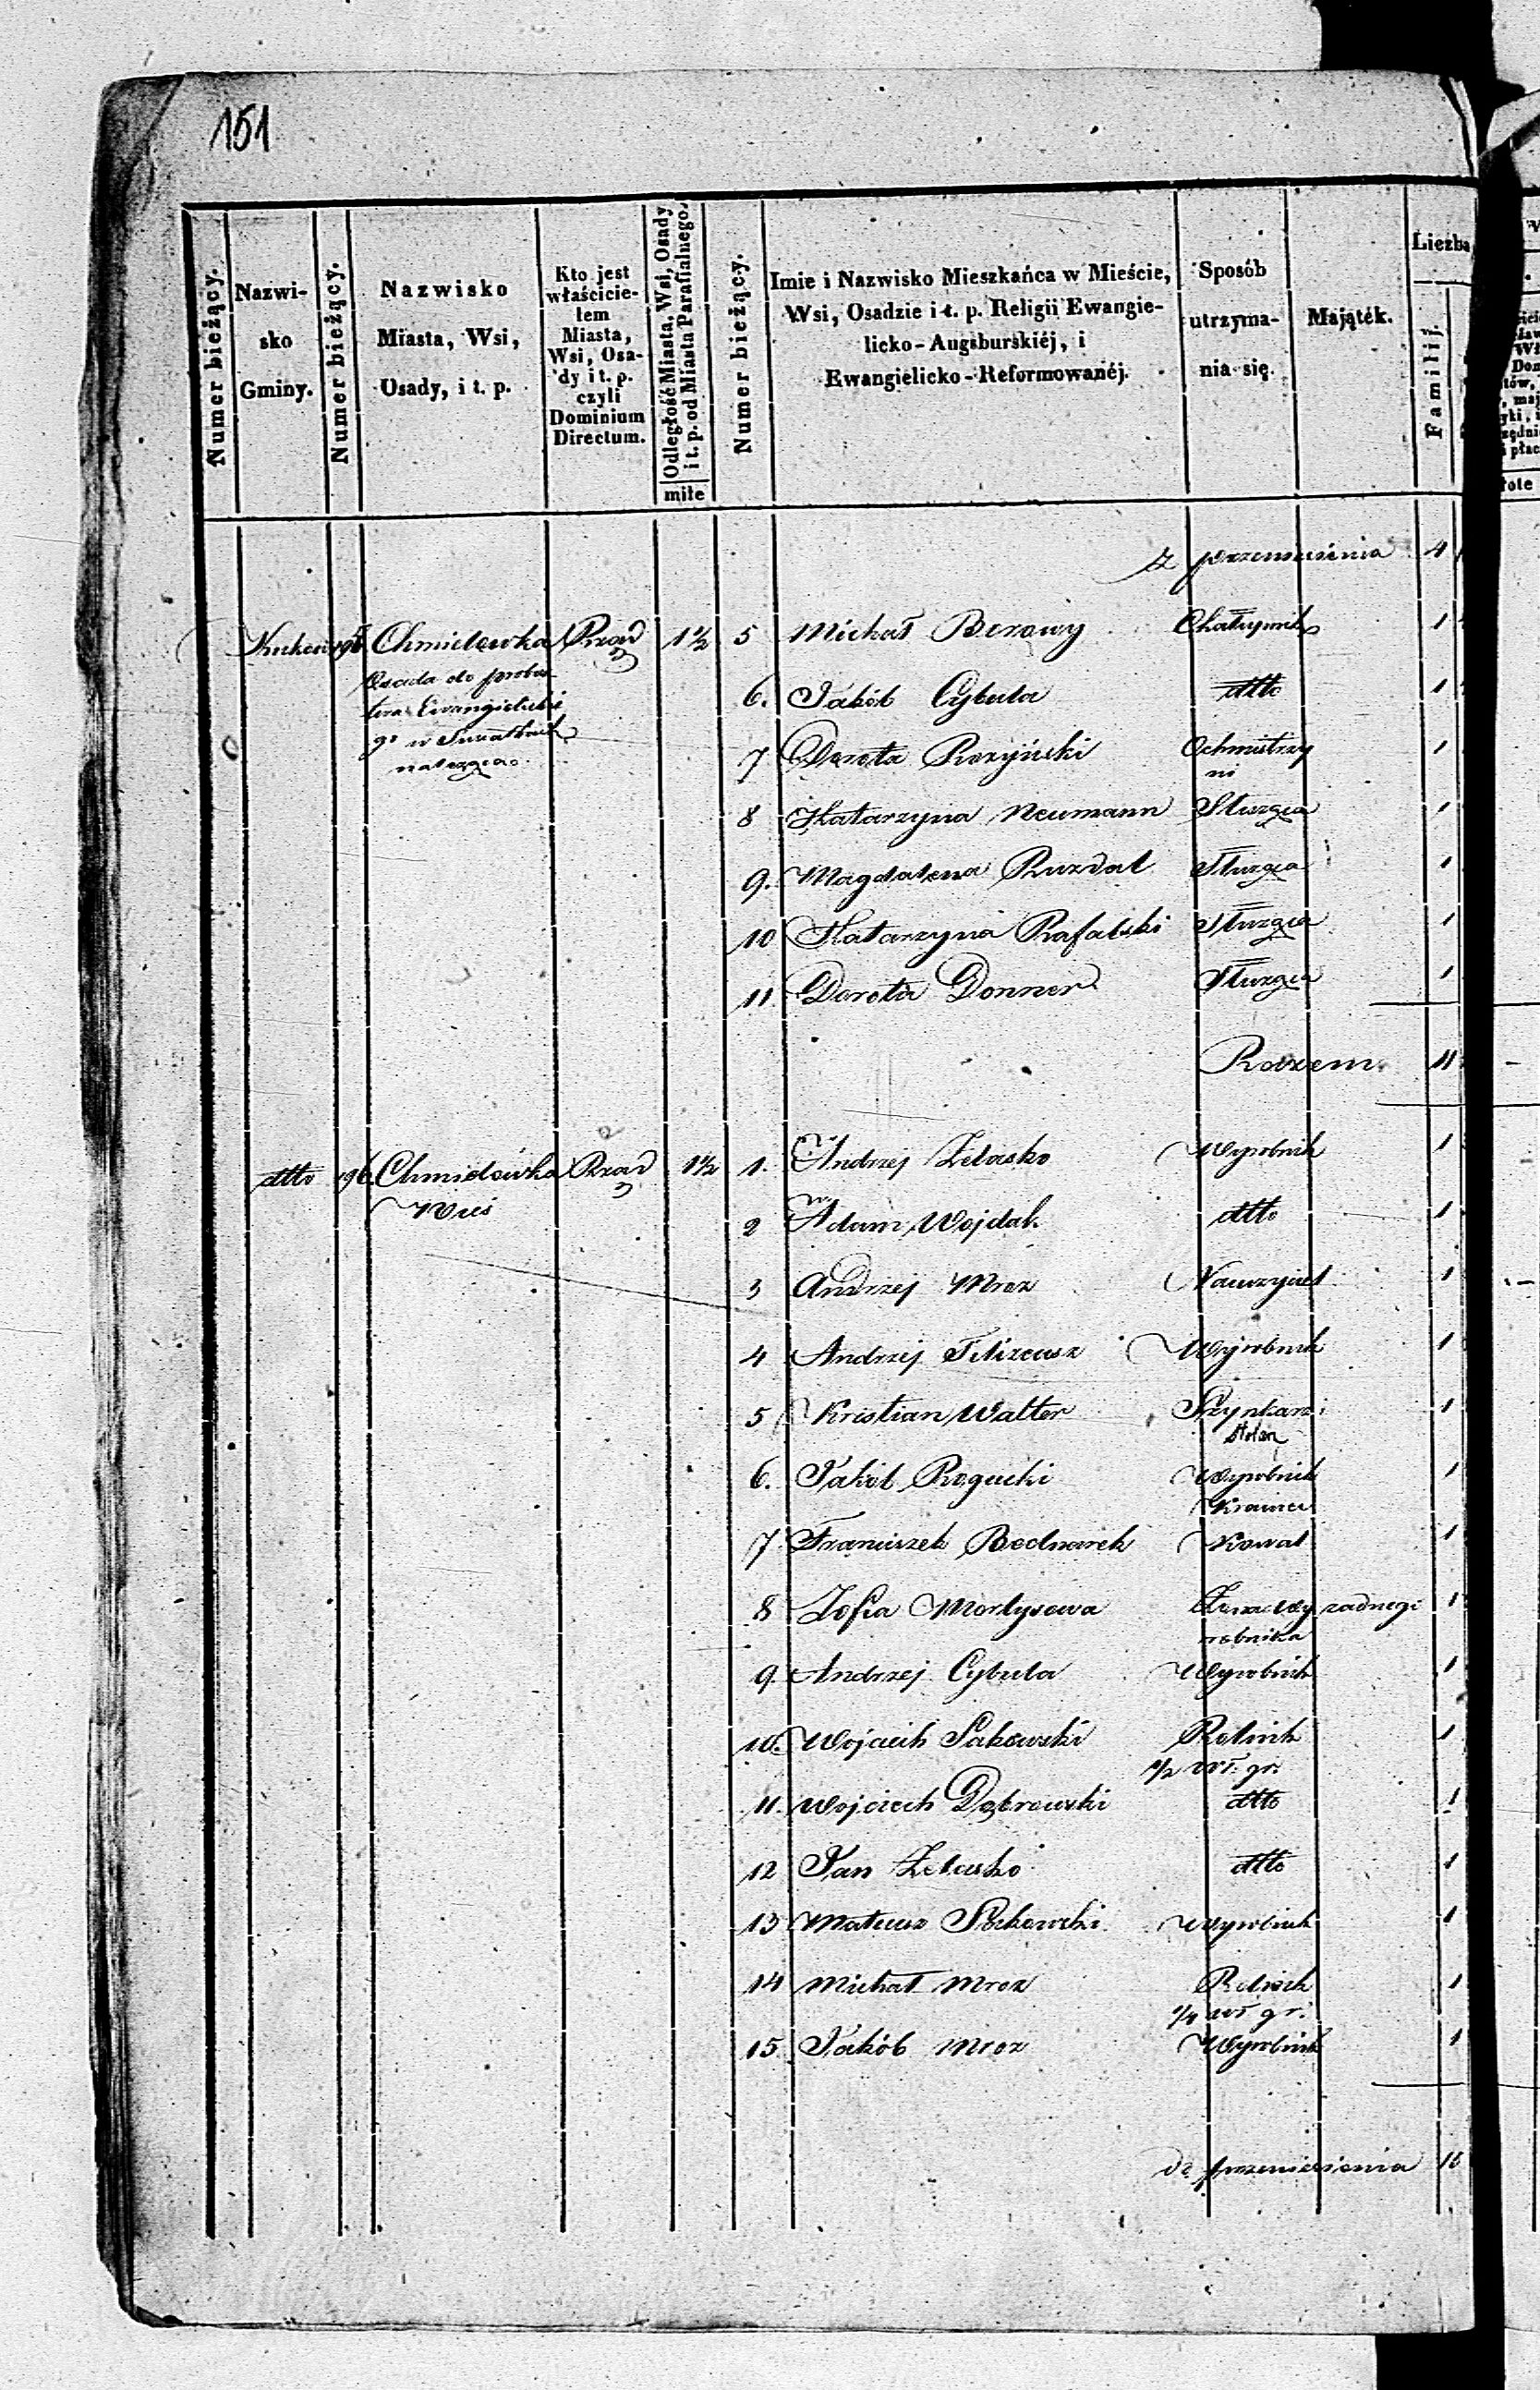 151
Numer bieżący.
Nazwisko Gminy.
Numer bieżący.
Nazwisko Miasta, Wsi, Osady, i t. p.
Kto jest właścicielem Miasta, Wsi, Osady i t. p. czyli Dominium Directum.
Odległość Miasta, Wsi, Osady i t. p. od Miasta Parafialnego.
mile
Numer bieżący.
Imie i Nazwisko Mieszkańca w Mieście,
Wsi, Osadzie i t. p. Religii Ewangie-
licko-Augsburskiéj, i
Ewangielicko-Reformowanéj.
Sposób utrzymania się.
Mająték.
Liczba
Familij.
z przeniesienia 4
Chmielewka Rząd 1 1/2 5 Michał Borowy Chałupnik 1
Osada do probos-
twa Ewangielickie
go w Suwałkach
należąca.
6. Jakób Cybula dtto 1
7 Dorota Rozyński Ochmistrzy
ni 1
8 Katarzyna Neumann Służąca 1
9. Magdalena Ruzdal Służąca 1
10 Katarzyna Rafalski Służąca 1
11 Dorota Donner Służąca 1
Razem. 11
dtto 196 Chmielówka Rząd 1 1/2 1. Andrzej Zelasko Wyrobnik 1
Wieś
2 Adam Wojdak dtto 1
3 Andrzej Mroz Nauczyciel 1
4 Andrzej Wyrobnik 1
5 Kristian Walter Szynkarz i
stolarz 1
6. Jakób Rogucki Wyrobnik
Krawiec 1
7 Franciszek Bednarek Kowal 1
8 Zofia Mortysowa Żona wy
robnika żadnego 1
9. Andrzej Cybula Wyrobnik 1
10. Wojciech Sakowski Rolnik
1/2 wł. gr. 1
11. Wojciech Dąbrowski dtto 1
12 Jan Zelasko dtto 1
13 Mateusz Wyrobnik 1
14 Michał Mroz Rolnik
1/4 wł gr. 1
15. Jakób Mroz Wyrobnik 1
do przeniesienia